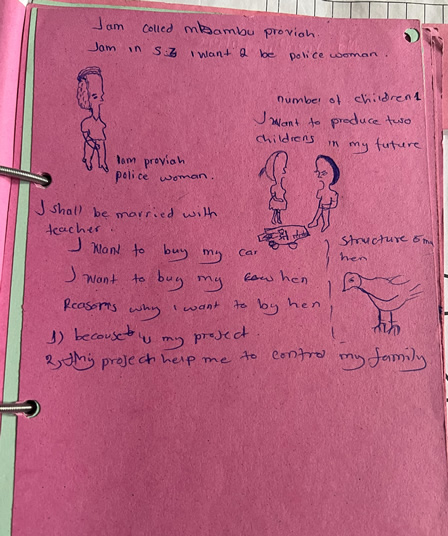 Iam called mbambu proviah.
Iam in S.3 I want 2 be police woman.
number of children
I want to produce two
childrens in my future
Iam proviah
police woman.
I shall be married with
teacher.
I want to buy my car
I want to buy my hen
Reasons why i want to by hen
structure
hen
1) because my project.
2) project help me to control my family